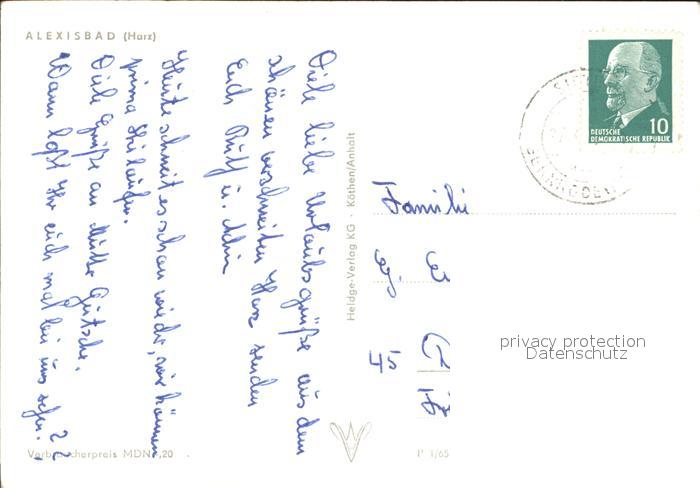 ALEXISBAD (Harz)
Viele liebe Urlaubsgrüße aus dem
schönen verschneiten Harz senden
Euch Ruth u. Achim
Heute schneit es schon wieder, wir können
prima Ski laufen.
Viele Grüße an Mutter
Wann laßt Ihr euch mal bei uns sehen?
Verbraucherpreis MDN 0,20
Heldge-Verlag KG · Köthen/Anhalt
P 1/65
DEUTSCHE 10
DEMOKRATISCHE REPUBLIK
Familie
privacy protection
Datenschutz